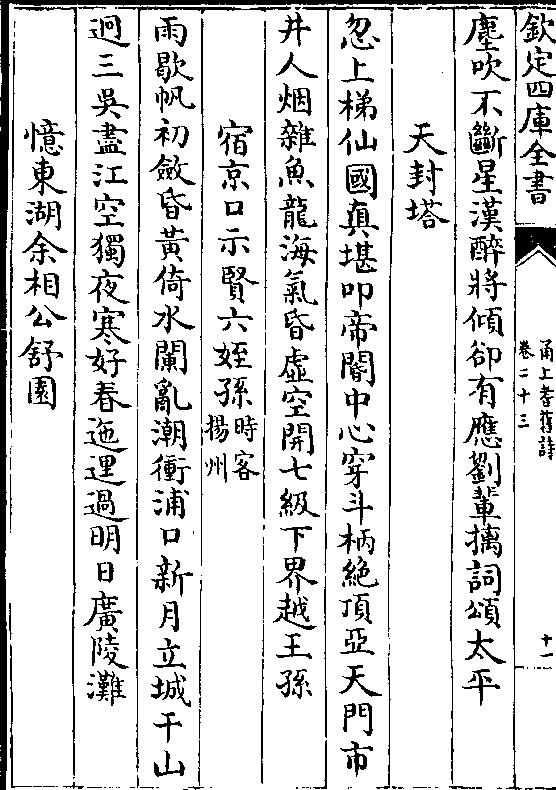 欽定四庫全書
甬上耆舊詩
卷二十三
十一
塵吹不斷星漢醉將傾卻有應劉軰摛詞頌太平
天封塔
忽上梯仙國真堪叩帝閽中心穿斗柄絶頂亞天門市
井人烟雜魚龍海氣昏虛空開七級下界越王孫
宿京口示賢六姪孫時客揚州
雨歇帆初斂昏黃倚水闌亂潮衝浦口新月立城干山
迥三吳盡江空獨夜寒好春迤逦過明日廣陵灘
憶東湖余相公舒園